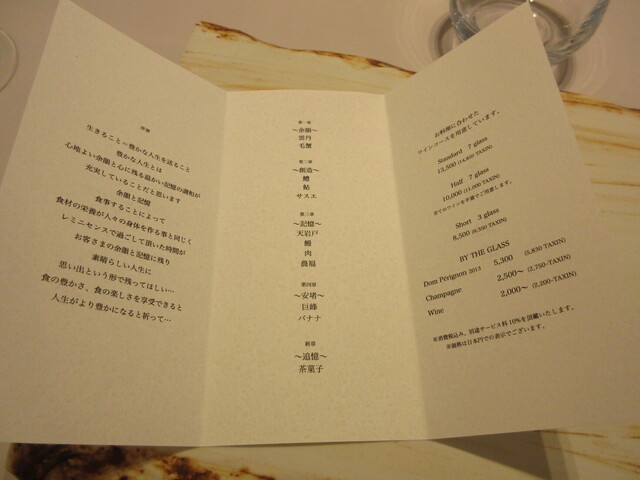 序章
生きること＝豊かな人生を送ること
豊かな人生とは
心地よい余韻と心に残る温かい記憶の調和が
充実していることだと思います
余韻と記憶
食事することによって
食材の栄養が人々の身体を作る事と同じく
レミニセンスで過ごして頂いた時間が
お客さまの余韻と記憶に残り
素晴らしい人生に
思い出という形で残ってほしい…
食の豊かさ、食の楽しさを享受できると
人生がより豊かになると祈って…
第一章
〜余韻〜
雲丹
毛蟹
第二章
〜創造〜
鱧
鮎
サスエ
第三章
〜記憶〜
天岩戸
鰻
肉
農福
第四章
〜安堵〜
巨峰
バナナ
終章
〜追憶〜
茶菓子
お料理に合わせた
ワインコースを用意しています。
Standard 7 glass
13,500 (14,850 TAXIN)
Half 7 glass
10,000 (11,000 TAXIN)
全てのワインを半量でご用意します。
Short 3 glass
8,500 (9,350 TAXIN)
BY THE GLASS
Dom Pérignon 2013 5,300 (5,830 TAXIN)
Champagne 2,500〜 (2,750-TAXIN)
Wine 2,000〜 (2,200-TAXIN)
※消費税込み、別途サービス料10%を頂戴いたします。
※価格は日本円での表示でございます。